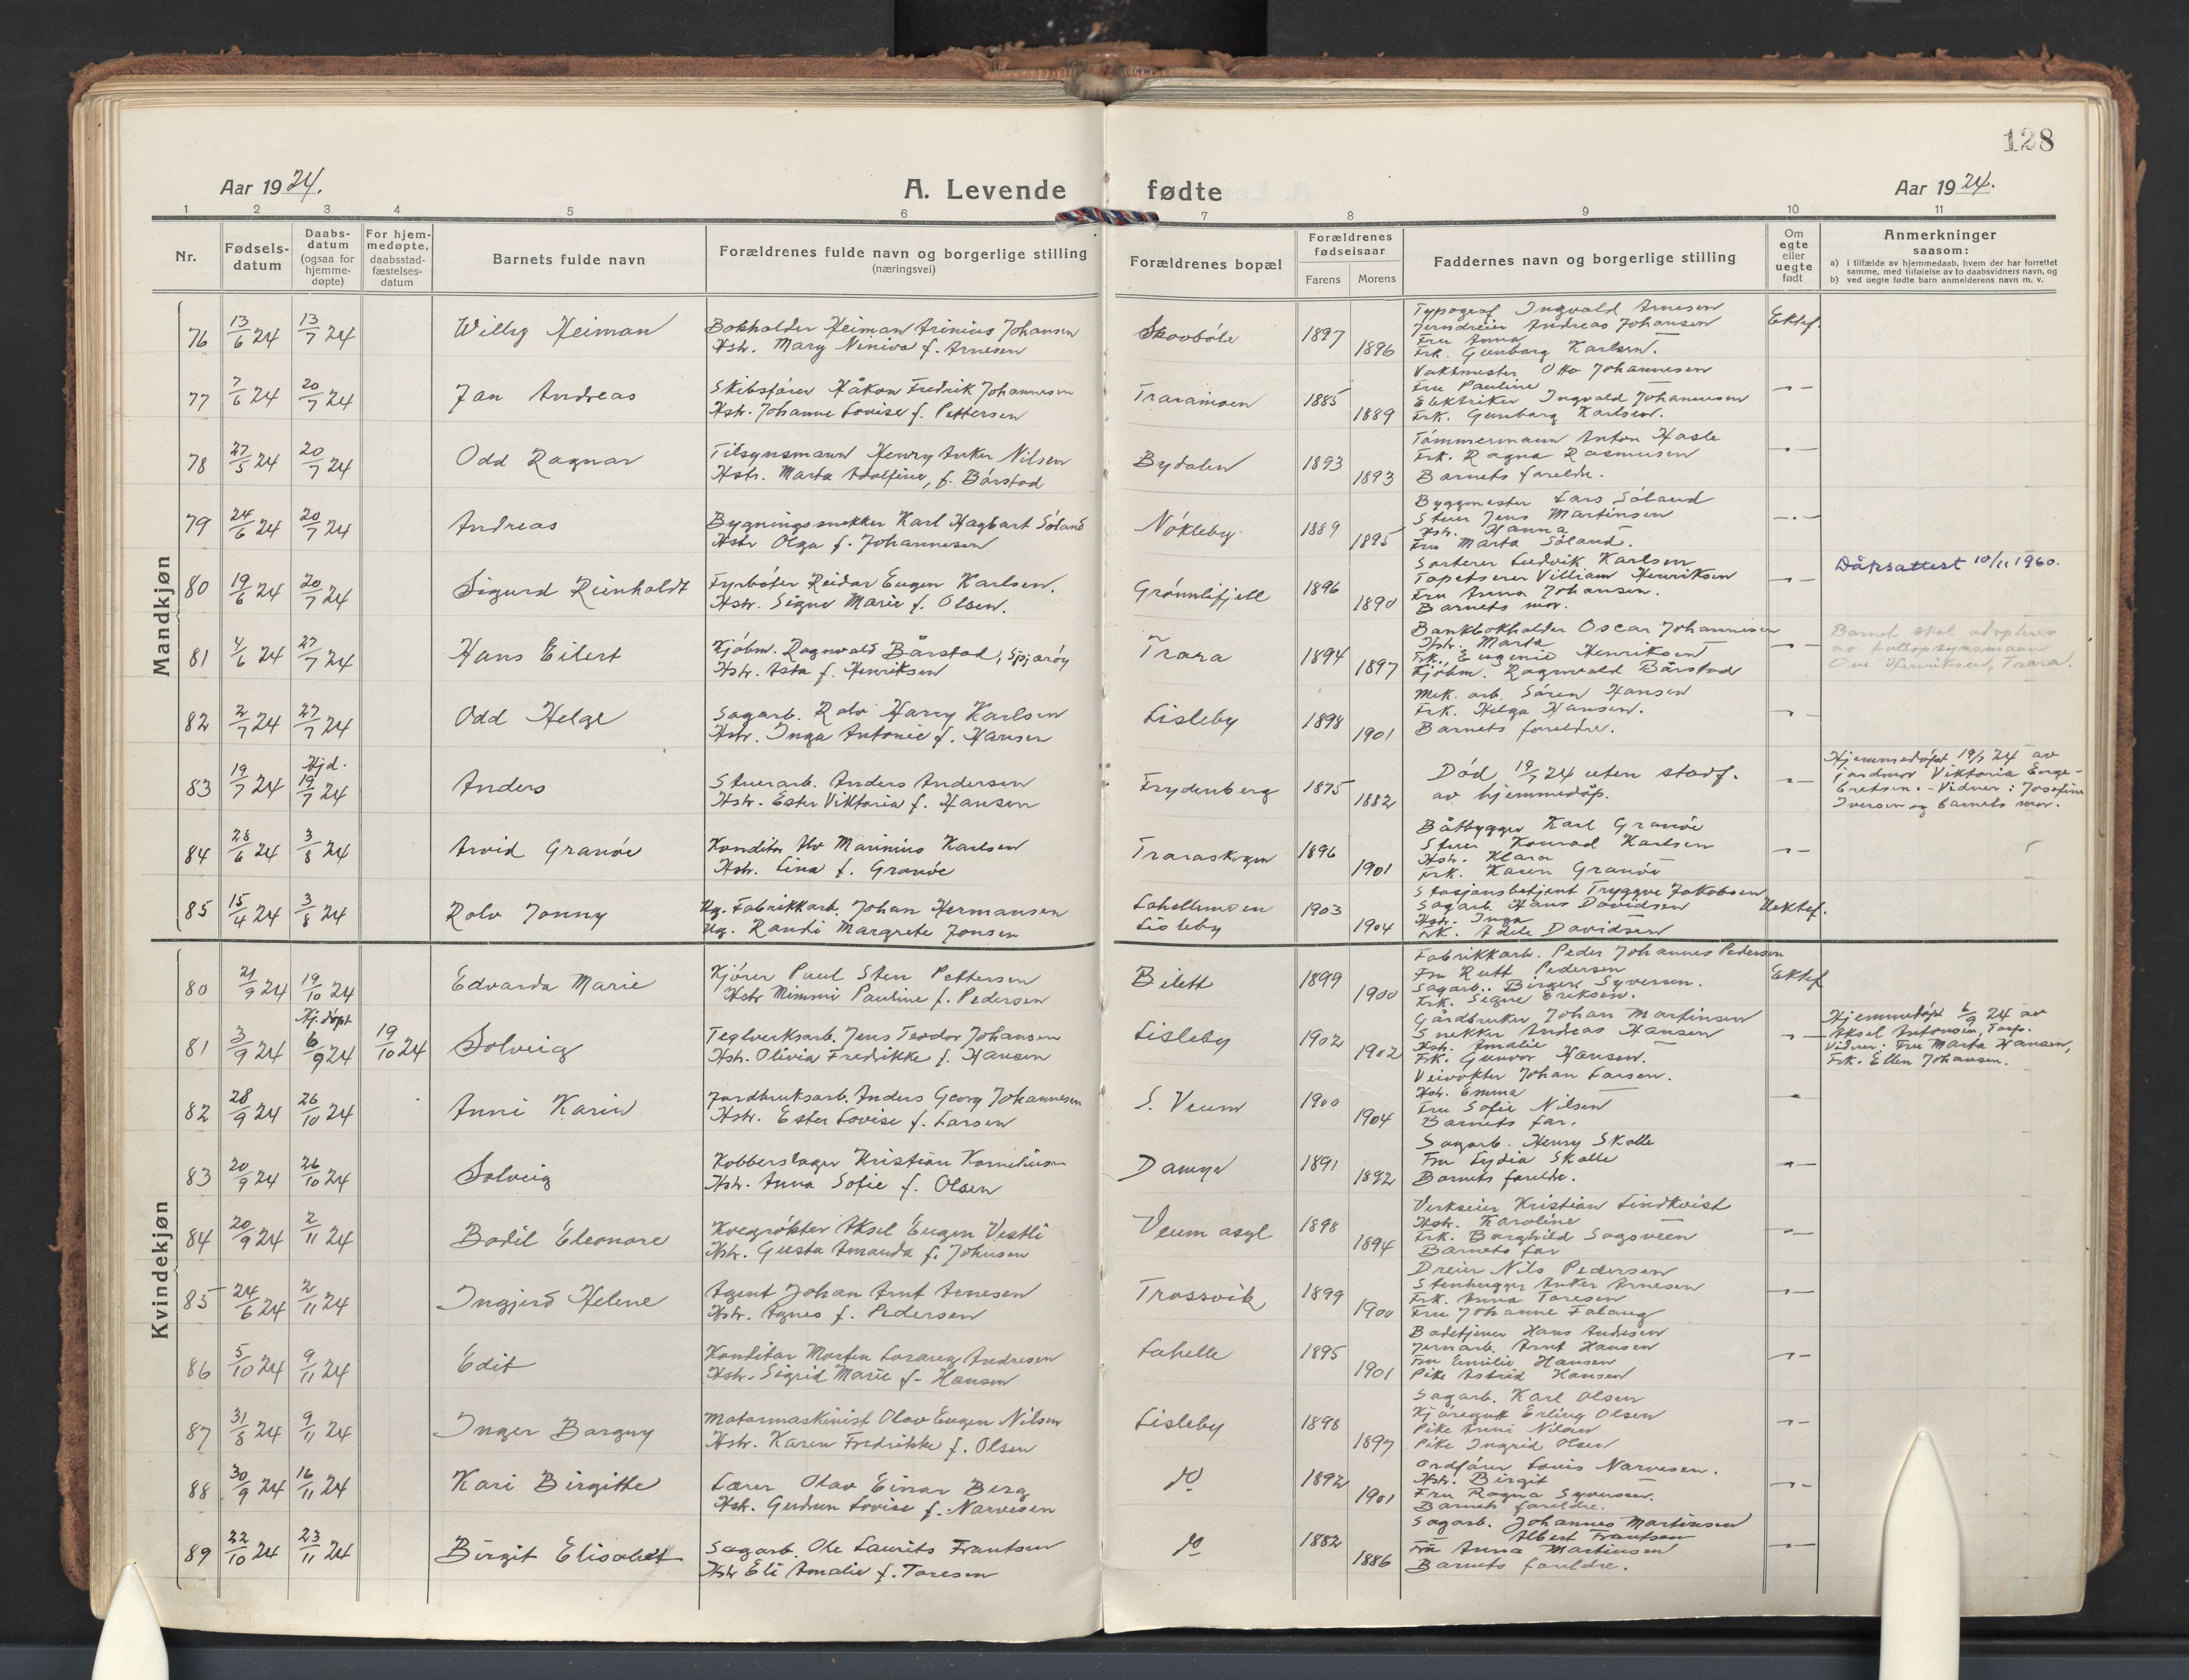 128
Aar 1924.
A. Levende fødte
Aar 1924.
1 2 3 4 5 6 7 8 9 10 11
Nr.
Fødsels-datum
Daabs-datum (ogsaa for hjemme-døpte)
For hjem-medøpte, daabsstad-fæstelses-datum
Barnets fulde navn
Forældrenes fulde navn og borgerlige stilling (næringsvei)
Forældrenes bopæl
Forældrenes fødselsaar
Farens Morens
Faddernes navn og borgerlige stilling
Om egte eller uegte født
Anmerkninger saasom:
a) i tilfælde av hjemmedaab, hvem der har forrettet samme, med tilføielse av to daabsvidners navn, og
b) ved uegte fødte barn anmelderens navn m. v.
Mandkjøn
76 13/6 24 13/7 24 Willy Heiman
Bokholder Heiman Arinius Johansen
Hstr. Mary Niniva f. Arnesen
Skovbøle 1897 1896
Typograf Ingvald Arnesen
Jerndreier Andreas Johansen
Fru Anna
Frk. Gunborg Karlsen.
Ektef.
77 7/6 24 20/7 24 Jan Andreas
Skibsfører Håkon Fredrik Johannesen
Hstr. Johanne Lovise f. Pettersen
Traramoen 1885 1889
Vaktmester Otto Johannesen
Fru Pauline
Elektriker Ingvald Johannesen
Frk. Gunborg Karlsen.
78 27/5 24 20/7 24 Odd Ragnar
Tilsynsmann Henry Anker Nilsen
Hstr. Marta Adolfine, f. Bårstad
Bydalen 1893 1893
Tømmermann Anton Hasle
Frk. Ragna Rasmusen
Barnets foreldre.
79 24/6 24 20/7 24 Andreas
Bygningssnekker Karl Hagbart Søland
Hstr Olga f. Johannesen
Nøkleby 1889 1895
Byggmester Lars Søland
Stuer Jens Martinsen
Hstr. Hanna
Fru Marta Søland.
80 19/6 24 20/7 24 Sigurd Reinholdt
Fyrbøter Reidar Eugen Karlsen.
Hstr. Signe Marie f. Olsen.
Grønnlifjell 1896 1890
Sorterer Ludvik Karlsen
Tapetserer Villiam Henriksen
Fru Anna Johansen.
Barnets mor.
Dåpsattest 10/11 1960.
81 4/6 24 27/7 24 Hans Eilert
Kjøbm. Ragnvald Bårstad, Spjærøy
Hstr. Asta f. Henriksen
Trara 1894 1897
Bankbokholder Oscar Johannesen
Hstr. Marta
Frk. Eugenie Henriksen
Kjøbm. Ragnvald Bårstad
Barnet skal adopteres
av
Ove Henriksen, Trara.
82 2/7 24 27/7 24 Odd Helge
Sagarb. Rolv Harry Karlsen
Hstr. Inga Antonie f. Hansen
Lisleby 1898 1901
Mek. arb. Søren Hansen
Frk. Helga Hansen.
Barnets foreldre.
83 19/7 24 Hjd. 19/7 24 Anders
Stuerarb. Anders Andersen
Hstr. Ester Viktoria f. Hansen
Frydenberg 1875 1882
Død 19/7 24 uten stadf.
av hjemmedåp.
Hjemmedøpt 19/7 24 av
jordmor Viktoria Enge-
bretsen. - Vidner: Josefine
Iversen og barnets mor.
84 28/6 24 3/8 24 Arvid Granøe
Konditor Alv Marinius Karlsen
Hstr. Lina f. Granøe
Traraskogen 1896 1901
Båtbygger Karl Granøe
Stuer Konrad Karlsen
Hstr. Klara
Frk. Karen Granøe
85 15/4 24 3/8 24 Rolv Jonny
Ug. Fabrikkarb. Johan Hermansen
Ug. Randi Margrete Jonsen
Lahellemoen
Lisleby 1903 1904
Stasjonsbetjent Tryggve Jakobsen
Sagarb. Hans Davidsen
Hstr. Inga
Frk. Adele Davidsen
Uektef.
Kvindekjøn
80 21/9 24 19/10 24 Edvarda Marie
Kjører Paul Sten Pettersen
Hstr Mimmi Pauline f. Pedersen
Bilett 1899 1900
Fabrikkarb. Peder Johannes Pedersen
Fru Rutt Pedersen
Sagarb. Birger Syversen.
Frk. Signe Eriksen.
Ektef
81 3/9 24 Hj.døpt 6/9 24 19/10 24 Solveig
Teglverksarb. Jens Teodor Johansen
Hstr. Olivia Fredrikke f. Hansen
Lisleby 1902 1902
Gårdbruker Johan Martinsen
Snekker Andreas Hansen
Hstr. Amalie
Frk. Gunvor Hansen.
Hjemmedøpt 6/9 24 av
Aksel Antonsen, Torp.
Vidner: Fru Marta Hansen,
Frk. Ellen Johansen.
82 28/9 24 26/10 24 Anni Karin
Jordbruksarb. Anders Georg Johannesen
Hstr. Ester Lovise f. Larsen
S. Veum 1900 1904
Veivokter Johan Larsen.
Hstr. Emma
Fru Sofie Nilsen
Barnets far.
83 20/9 24 26/10 24 Solveig
Kobberslager Kristian Kornelius
Hstr. Anna Sofie f. Olsen
Damyr 1891 1892
Sagarb. Henry Skolle
Fru Lydia Skolle
Barnets foreldre.
84 20/9 24 2/11 24 Bodil Eleonore
Kvegrøkter Aksel Eugen Vestli
Hstr. Gusta Amanda f. Johnsen
Veum asyl 1898 1894
Verkseier Kristian Lindkvist
Hstr. Karoline
Frk. Borghild Sagsveen
Barnets far
85 24/6 24 2/11 24 Ingjerd Helene
Agent Johan Arnt Arnesen
Hstr. Agnes f. Pedersen
Trossvik 1899 1900
Dreier Nils Pedersen
Stenhugger Anker Arnesen
Frk. Anna Toresen
Fru Johanne Falang
86 5/10 24 9/11 24 Edit
Konditor Morten Lorang Andresen
Hstr. Sigrid Marie f. Hansen
Lahelle 1895 1901
Badetjener Hans Andresen
Jernarb. Arnt Hansen
Fru Emilie Hansen
Pike Astrid Hansen
87 31/8 24 9/11 24 Inger Borgny
Motormaskinist Olav Eugen Nilsen
Hstr. Karen Fredrikke f. Olsen
Lisleby 1898 1897
Sagarb. Karl Olsen
Kjøregutt Erling Olsen
Pike Anni Nilsen
Pike Ingrid Olsen
88 30/9 24 16/11 24 Kari Birgitte
Lærer Olav Einar Berg
Hstr. Gudrun Lovise f. Narvesen
do 1892 1901
Ordfører Louis Narvesen.
Hstr. Birgit
Fru Ragna Syversen.
Barnets foreldre.
89 22/10 24 23/11 24 Birgit Elisabet
Sagarb. Ole Laurits Frantsen
Hstr Eli Amalie f. Toresen
do 1882 1886
Sagarb. Johannes Martinsen
Albert Frantsen
Fru Anna Martinsen
Barnets foreldre.